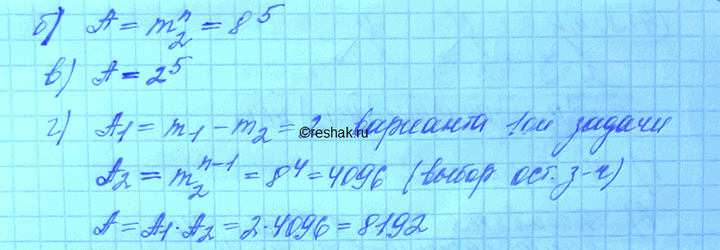 б) A = m₂ⁿ = 8⁵
в) A = 2⁵
г) A₁ = m₁ - m₂ = 2 варианта 1ой задачи
©reshak.ru
A₂ = m₂ⁿ⁻¹ = 8⁴ = 4096 (выбор ост. з-ч)
A = A₁·A₂ = 2·4096 = 8192